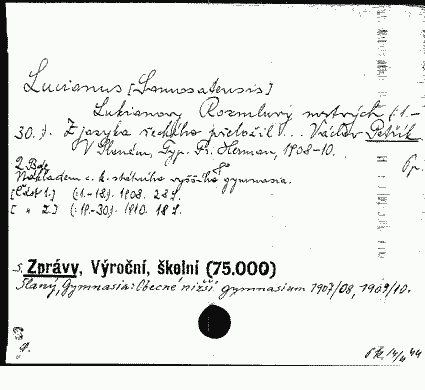 Lucianus [Samosatensis]
Lukianovy Rozmluvy mrtvých (:1.-
30.:). Z jazyka řeckého přeložil ... Václav Petřík
V Slaném, Typ. Fr. Herman, 1908-10.
2 Bde
Nákladem c. k. státního vyššího gymnasia.
[Část 1.] (:1.-18.:) 1908. 28 S.
[ " 2.] (:19.-30.:) 1910. 18 S.
s. Zprávy, Výroční, školní (75.000)
Slaný, Gymnasia: Obecné nižší gymnasium 1907/08, 1909/10.